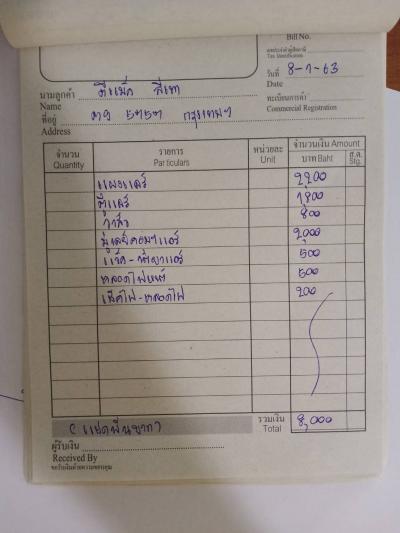 Bill No.
เลขประจำตัวผู้เสียภาษี
Tax Identification
วันที่ 8-1-63
Date
นามลูกค้า
Name
ทะเบียนการค้า
Commercial Registration
ที่อยู่ กรุงเทพฯ
Address
จำนวน รายการ หน่วยละ จำนวนเงิน Amount
Quantity Particulars Unit บาท Baht ส.ต. Stg.
แผงแอร์ 2,200
ตู้แอร์ 1,800
วาล์ว 800
มู่เลย์คอมฯแอร์ 2,000
500
หลอดไฟหน้า 500
เช็คไฟ-หลอดไฟ 200
(แปดพันบาท) รวมเงิน 8,000
Total
ผู้รับเงิน
Received By